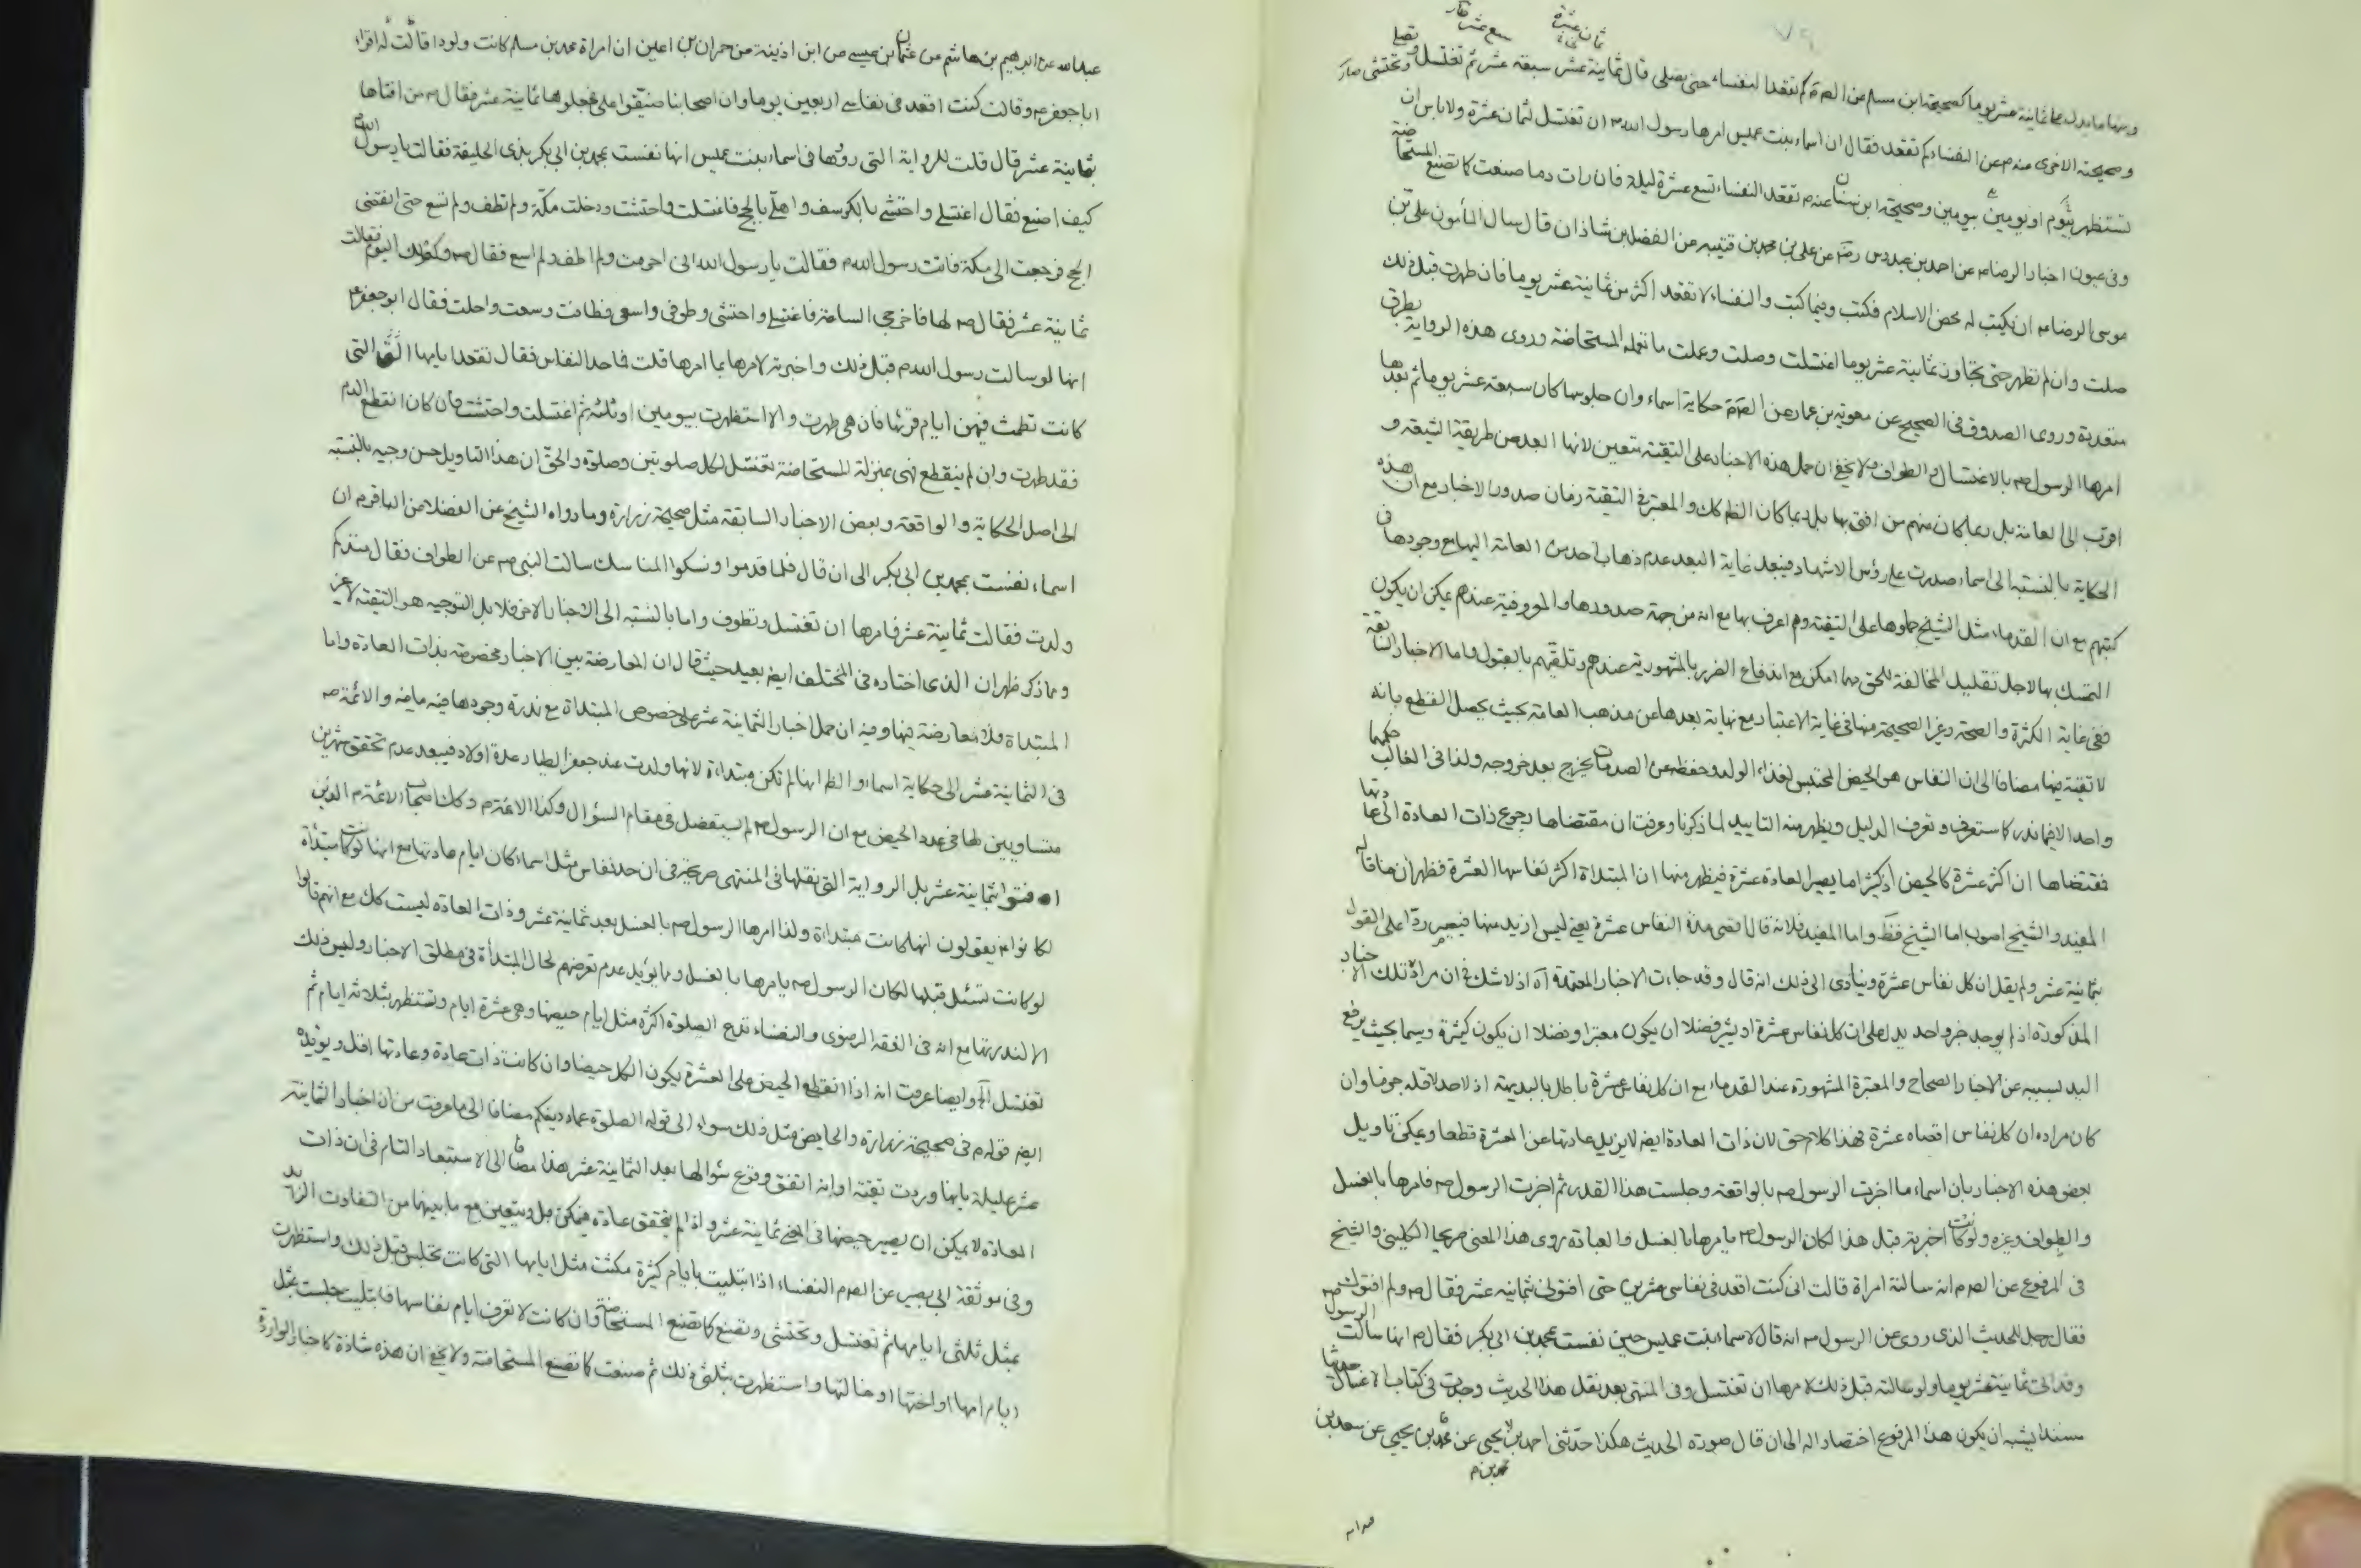 ومنها ما يدل على ثمانية عشر يوما كصحيحة ابن مسلم عن الصم كم تقعد النفساء حتى تصلى قال ثمانية عشر سبعة عشر ثم تغتسل وتحتشى
وصحيحته الاخرى عنه م عن النفساء كم تقعد فقال ان اسماء بنت عميس امرها رسول الله ص ان تغتسل لثمان عشرة ولا باس ان
تستظهر بيوم او يومين وصحيحة ابن سنان عنه م تقعد النفساء تسع عشرة ليلة فان رات دما صنعت كما تصنع المستحاضة
وفى عيون اخبار الرضا م عن احمد بن عبدوس رضه عن على بن محمد بن قتيبه عن الفضل بن شاذان قال سال المأمون على بن
موسى الرضا م ان يكتب له محض الاسلام فكتب وفيما كتب والنفساء لا تقعد اكثر من ثمانية عشر يوما فان طهرت قبل ذلك
صلت وان لم تطهر حتى تجاوز ثمانية عشر يوما اغتسلت وصلت وعملت ما تعمله المستحاضة وروى هذه الرواية بطرق
متعددة وروى الصدوق فى الصحيح عن معوية بن عمار عن الصم حكاية اسماء وان جلوسها كان سبعة عشر يوما ثم بعدها
امرها الرسول ص بالاغتسال والطواف ولا يخفى ان حمل هذه الاخبار على التقية متعين لانها ابعد من طريقة الشيعة و
اقرب الى العامة بل ربما كان منهم من افتى بها بل ربما كان الظ كك والمعتبر فى التقية زمان صدور الاخبار مع ان هذه
الحكاية بالنسبة الى اسماء صدرت على رؤس الاشهاد فيبعد غاية البعد عدم ذهاب احد من العامة اليها مع وجودها فى
كتبهم مع ان القدماء مثل الشيخ حملوها على التقية وهم اعرف بها مع انه من جهة صدورها والمعروفية عندهم يمكن ان يكون
التمسك بها لاجل تقليل المخالفة للحق مهما امكن مع اندفاع الضرر بالمشهورية عندهم وتلقيهم بالقبول واما الاخبار السابقة
ففى غاية الكثرة والصحة وغير الصحيحة منها فى غاية الاعتبار مع نهاية بعدها عن مذهب العامة بحيث يحصل القطع بانه
لا تقية فيها مضافا الى ان النفاس هو الحيض المحتبس لغذاء الولد وحفظه عن الصدمات يخرج بعد خروجه ولذا فى الغالب حكمهما
واحد الا فيما ندر كما ستعرف وتعرف الدليل ويظهر منه التاييد لما ذكرنا وعرفت ان مقتضاها رجوع ذات العادة الى عادتها
فمقتضاها ان اكثره عشرة كالحيض اذ كثيرا ما يصير العادة عشرة فيظهر منها ان المبتدأة اكثر نفاسها العشرة فظهر ان ما قاله
المفيد والشيخ اصوب اما الشيخ فظ واما المفيد فلانه قال اقصى مدة النفاس عشرة يعنى ليس ازيد منها فيصير ردا على القول
بثمانية عشر ولم يقل ان كل نفاس عشرة وينادى الى ذلك انه قال وقد جاءت الاخبار المعتمدة آه اذ لا شك فى ان مراده تلك الاخبار
المذكورة اذ لم يوجد خبر واحد يدل على ان كل نفاس عشرة او يشير فضلا ان يكون معتبرا وفضلا ان يكون كثيرة وسيما بحيث يرفع
اليد بسببه عن الاخبار الصحاح والمعتبرة المشهورة عند القدماء مع ان كل نفاس عشرة باطل بالبديهة اذ لا حد لاقله جزما وان
كان مراده ان كل نفاس اقصاه عشرة فهذا كلام حق لان ذات العادة ايضه لا يزيد عادتها عن العشرة قطعا ويمكن تاويل
بعض هذه الاخبار بان اسماء ما اخبرت الرسول ص بالواقعة وجلست هذا القدر ثم اخبرت الرسول ص فامرها بالغسل
والطواف وغيره ولو كانت اخبرته قبل هذا لكان الرسول ص يامرها بالغسل والعبادة روى هذا المعنى صريحا الكلينى والشيخ
فى المرفوع عن الصم انه سالته امراة قالت انى كنت اقعد فى نفاسى عشرين حتى افتونى ثمانية عشر فقال م ولم افتوك
فقال رجل للحديث الذى روى عن الرسول ص انه قال لاسماء بنت عميس حين نفست بمحمد بن ابى بكر فقال م انها سالت الرسول ص
وقد اتى ثمانية عشر يوما ولو سالته قبل ذلك لامرها ان تغتسل وفى المنتهى بعد نقل هذا الحديث وجدت فى كتاب الاغسال حديثا
مسندا يشبه ان يكون هذا المرفوع اختصارا له الى ان قال صورة الحديث هكذا حدثنى احمد بن محمد بن يحيى عن سعد بن
عبد الله عن ابرهيم بن هاشم عن عثمان بن عيسى عن ابن اذينة عن حمران بن اعين ان امراة محمد بن مسلم كانت ولودا قالت له اقراء
ابا جعفر م وقالت كنت اقعد فى نفاسى اربعين يوما وان اصحابنا ضيقوا على فجعلوها ثمانية عشر فقال م من افتاها
بثمانية عشر قال قلت للرواية التى رووها فى اسماء بنت عميس انها نفست بمحمد بن ابى بكر بذى الحليفة فقالت يا رسول الله
كيف اصنع فقال اغتسلى واحتشى بالكرسف واهلى بالحج فاغتسلت واحتشت ودخلت مكة ولم تطف ولم تسع حتى انقضى
الحج فرجعت الى مكة فاتت رسول الله ص فقالت يا رسول الله انى احرمت ولم اطف ولم اسع فقال ص وكم لك اليوم فقالت
ثمانية عشر فقال ص لها فاخرجى الساعة فاغتسلى واحتشى وطوفى واسعى فطافت وسعت واحلت فقال ابو جعفر م
انها لو سالت رسول الله ص قبل ذلك واخبرته لامرها بما امرها قلت فما حد النفاس فقال تقعد ايامها التى
كانت تطمث فيهن ايام قرئها فان هى طهرت والا استظهرت بيومين او ثلثة ثم اغتسلت واحتشت فان كان انقطع الدم
فقد طهرت وان لم ينقطع فهى بمنزلة المستحاضة تغتسل لكل صلوتين وصلوة والحق ان هذا التاويل حسن وجيه بالنسبه
الى اصل الحكاية والواقعة وبعض الاخبار السابقة مثل صحيحة زرارة وما رواه الشيخ عن الفضلا عن الباقر م ان
اسماء نفست بمحمد بن ابى بكر الى ان قال فلما قدموا ونسكوا المناسك سالت النبى ص عن الطواف فقال منذ كم
ولدت فقالت ثمانية عشر فامرها ان تغتسل وتطوف واما بالنسبه الى الاخبار الاخر فلا بل التوجيه هو التقية لا غير
ومما ذكر ظهر ان الذى اختاره فى المختلف ايضه بعيد حيث قال ان المعارضة بين الاخبار مخصوصة بذات العادة واما
المبتداة فلا معارضة فيها وفيه ان حمل اخبار الثمانية عشر على خصوص المبتداة مع ندرة وجودها فيه ما فيه والائمة ص
فى الثمانية عشر الى حكاية اسماء والظ انها لم تكن مبتداة لانها ولدت عند جعفر الطيار عدة اولاد فيبعد عدم تحقق شهرين
متساويين لها فى عدد الحيض مع ان الرسول ص لم يستفصل فى مقام السؤال وكذا الائمة م وكك اصحاب الائمة م الذين
افتوا بثمانية عشر بل الرواية التى نقلها فى المنتهى صريحة فى ان حد نفاس مثل اسماء كان ايام عادتها مع انها لو كانت مبتدأة
لكانوا م يقولون انها كانت مبتداة ولذا امرها الرسول ص بالغسل بعد ثمانية عشر وذات العادة ليست كك مع انهم قالوا
لو كانت تسئل قبلها لكان الرسول ص يامرها بالغسل ومما يؤيد عدم تعرضهم لحال المبتدأة فى مطلق الاخبار وليس ذلك
الا لندرتها مع انه فى الفقه الرضوى والنفساء تدع الصلوة اكثره مثل ايام حيضها وهى عشرة ايام وتستظهر بثلاثة ايام ثم
تغتسل آه وايضا عرفت انه اذا انقطع الحيض على العشرة يكون الكل حيضا وان كانت ذات عادة وعادتها اقل ويؤيده
ايضه قوله م فى صحيحة زرارة والحايض مثل ذلك سواء الى قوله الصلوة عماد دينكم مضافا الى ما عرفت من ان اخبار الثمانية
عشر عليلة بانها وردت تقية او انه اتفق وقوع سؤالها بعد الثمانية عشر هذا مضافا الى الاستبعاد التام فى ان ذات
العادة لا يمكن ان يصير حيضها ثمانية عشر واذا لم يتحقق عادة فيمكن بل ويتعين مع ما بينهما من التفاوت الزائد
وفى موثقة ابى بصير عن الصم النفساء اذا ابتليت بايام كثيرة مكثت مثل ايامها التى كانت تجلس قبل ذلك واستظهرت
بمثل ثلثى ايامها ثم تغتسل وتحتشى وتصنع كما تصنع المستحاضة وان كانت لا تعرف ايام نفاسها فابتليت جلست بمثل
ايام امها او اختها او خالتها واستظهرت بثلثى ذلك ثم صنعت كما تصنع المستحاضة ولا يخفى ان هذه شاذة كاخبار الواردة